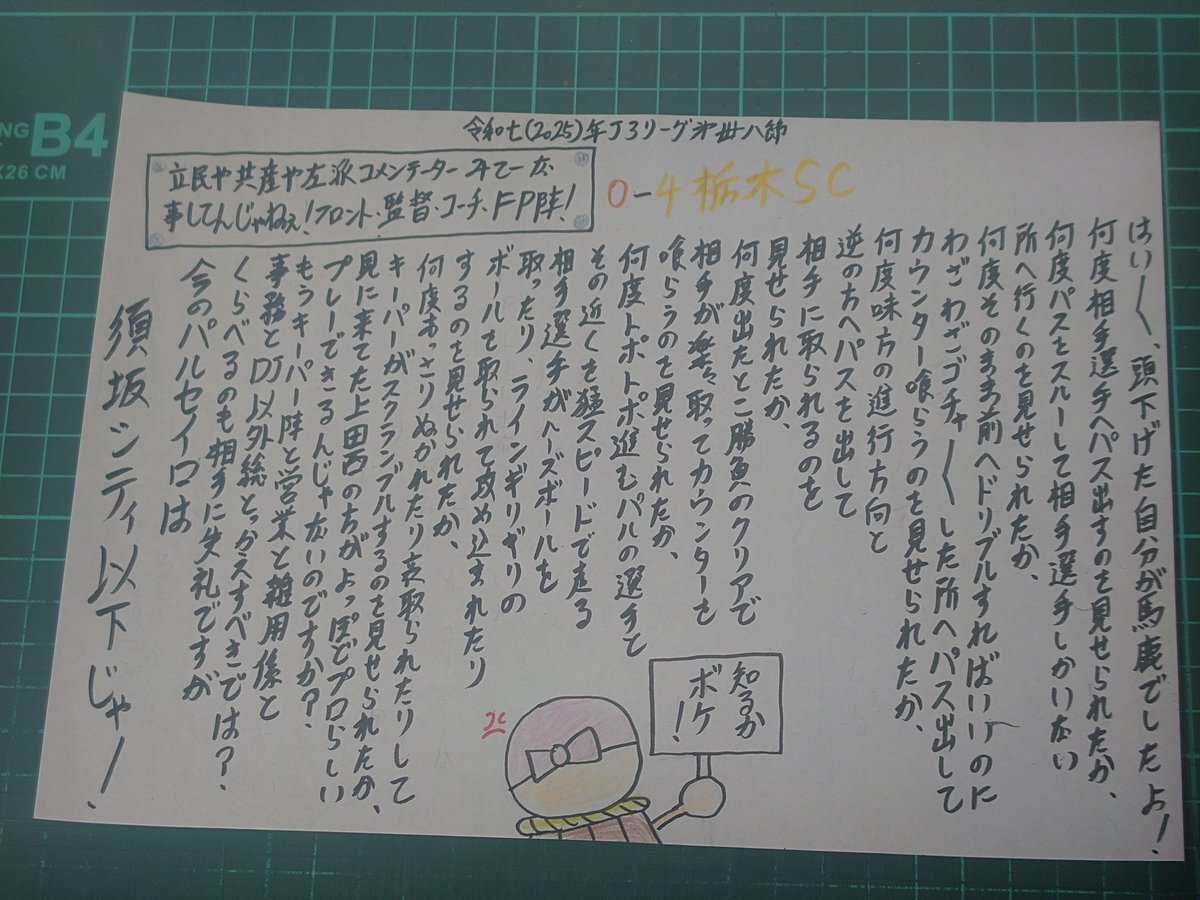 令和七(2025)年J3リーグ第卅八節
0-4栃木SC
立民や共産や左派コメンテーターみてーな
事してんじゃねぇ!フロント・監督・コーチ・FP陣!
はい〜、頭下げた自分が馬鹿でしたよ!
何度相手選手へパス出すのを見せられたか、
何度パスをスルーして相手選手しかいない
所へ行くのを見せられたか、
何度そのまま前へドリブルすればいいのに
わざわざゴチャ〜〜した所へパス出して
カウンター喰らうのを見せられたか、
何度味方の進行方向と
逆の方へパスを出して
相手に取られるのを
見せられたか、
何度出たとこ勝負のクリアで
相手が楽々取ってカウンターを
喰らうのを見せられたか、
何度トボトボ進むパルの選手と
その近くを猛スピードで走る
相手選手がルーズボールを
取ったり、ラインギリギリの
ボールを取られて攻め込まれたり
するのを見せられたか、
何度あっさりぬかれたり哀取られたりして
キーパーがスクランブルするのを見せられたか、
見に来てた上田西の方がよっぽどプロらしい
プレーできるんじゃないのですか?
もうキーパー陣と営業と雑用係と
事務とDJ以外総とっかえすべきでは?
くらべるのも相手に失礼ですが
今のパルセイロは
須坂シティ以下じゃ!
知るか
ボケ!
NG
B4
X26 CM